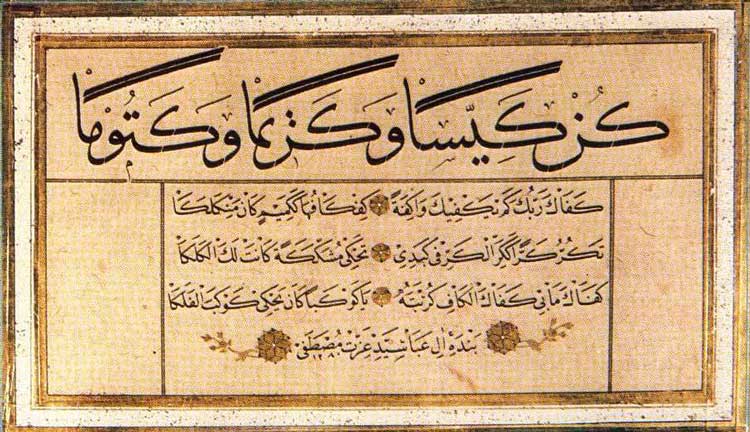 كُنْ كَيِّسًا وَكَرِيمًا وَكَتُومًا
كَفَاكَ رَبُّكَ كَمْ يَكْفِيكَ وَاكِفَةً كَفْكَافُهَا كَكَمِينٍ كَانَ مِنْ كَلَكَا
تَكُرُّ كَرًّا كَكَرِّ الْكَرِّ فِي كَبِدِي تَحْكِي مُشَكْشَكَةً كَانَتْ لَكَ الْكَلَكَا
كَفَاكَ مَا بِي كَفَاكَ الْكَافُ كُرْبَتَهُ يَا كَوْكَبًا كَانَ يَحْكِي كَوْكَبَ الْفَلَكَا
بنده آل عبا سيد عزت مصطفى